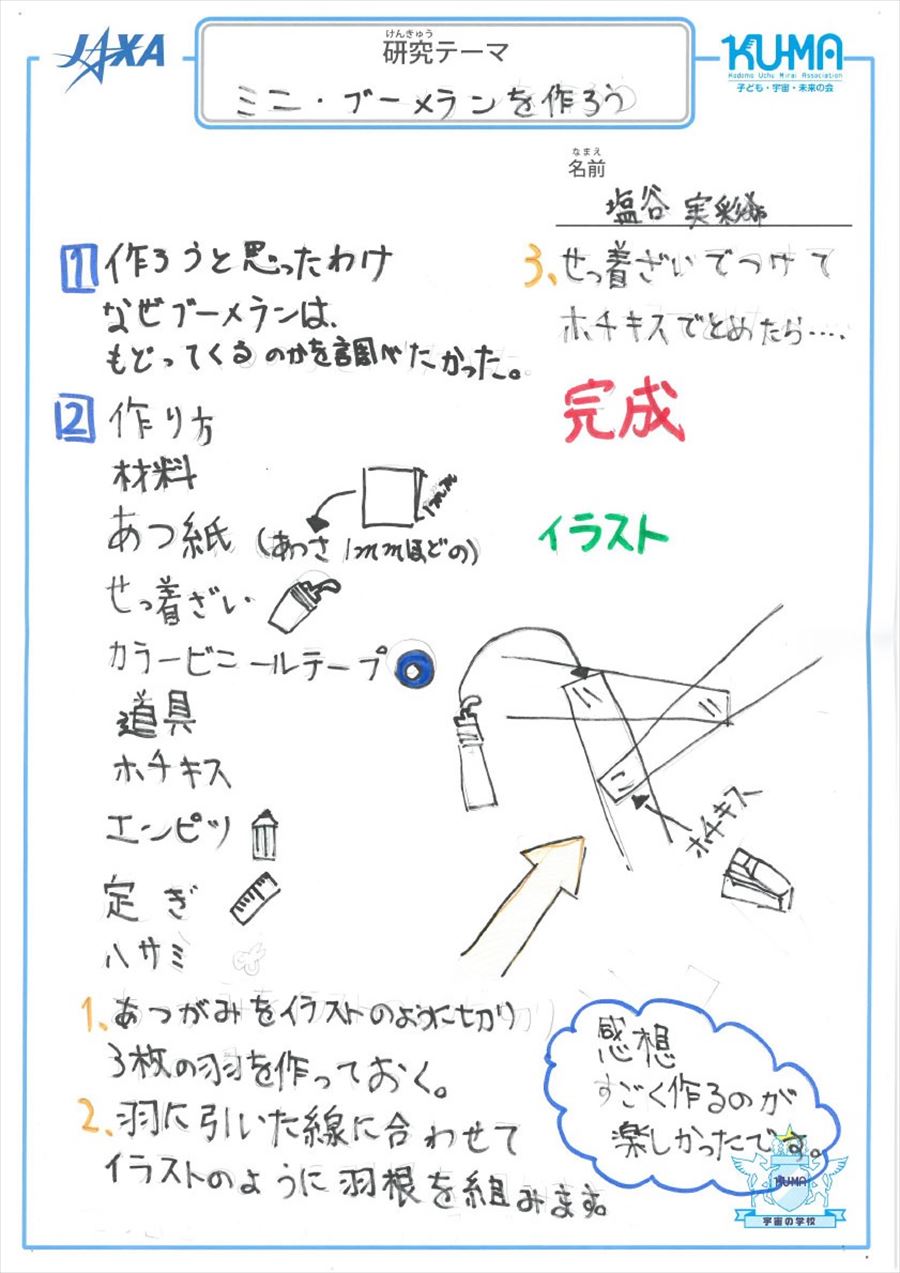 JAXA
けんきゅう
研究テーマ
ミニ・ブーメランを作ろう
KU-MA
Kodomo Uchu Mirai Association
子ども・宇宙・未来の会
なまえ
名前
塩谷 実彩
1 作ろうと思ったわけ
なぜブーメランは、
もどってくるのかを調べたかった。
2 作り方
材料
1mm
あつ紙 (あつさ 1mmほどの)
せっ着ざい
カラービニールテープ
道具
ホチキス
エンピツ
定ぎ
ハサミ
1、あつがみをイラストのように切り
3枚の羽を作っておく。
2、羽に引いた線に合わせて
イラストのように羽根を組みます。
3、せっ着ざいでつけて
ホチキスでとめたら….
完成
イラスト
ホチキス
感想
すごく作るのが
楽しかったです。
KU-MA
宇宙の学校